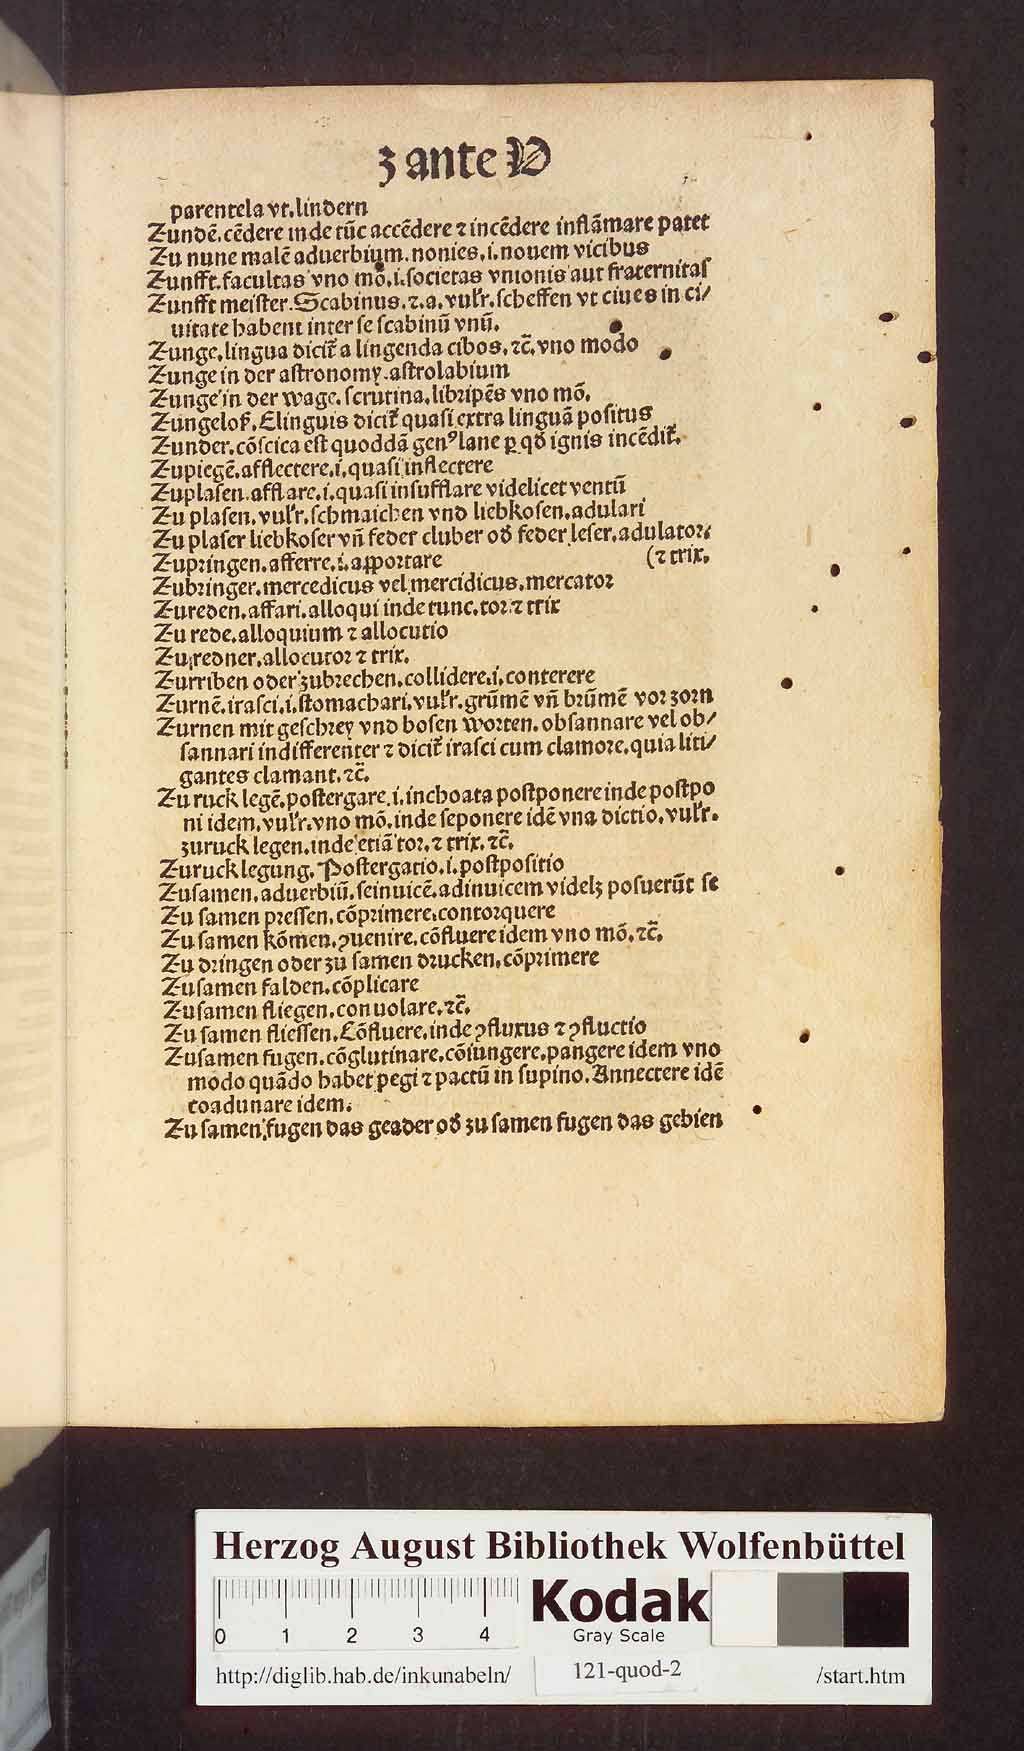 z ante V
parentela vt. lindern
Zundē. cēdere inde tūc accēdere ⁊ incēdere inflāmare patet
Zu nune malē aduerbium. nonies. i. nouem vicibus
Zunfft. facultas vno mō. i. societas vnionis aut fraternitas
Zunfft meister. Scabinus. ⁊. a. vulr. scheffen vt ciues in ci/
uitate habent inter se scabinū vnū.
Zunge, lingua dicit̄ a lingenda cibos. ⁊c̄. vno modo
Zunge in der astronomy. astrolabium
Zunge in der wage. scrutina. libripēs vno mō.
Zungeloß. Elinguis dicit̄ quasi extra linguā positus
Zunder. cōscica est quoddā genꝰ lane ꝑ qd̄ ignis incēdit̄.
Zupiegē. afflectere. i. quasi inflectere
Zuplasen. afflare. i. quasi insufflare videlicet ventū
Zu plasen. vulr. schmaichen vnd liebkosen. adulari
Zu plaser liebkoser vn̄ feder cluber od̄ feder leser. adulator.
Zupringen. afferre. i. apportare (⁊ trix.
Zubringer. mercedicus vel mercidicus. mercator
Zureden. affari. alloqui inde tunc. tor ⁊ trix
Zu rede. alloquium ⁊ allocutio
Zu redner. allocutor ⁊ trix.
Zurriben oder zubrechen. collidere. i. conterere
Zurnē. irasci. i. stomachari. vulr. grūmē vn̄ brūmē vor zorn
Zurnen mit geschrey vnd bosen worten. obsannare vel ob/
sannari indifferenter ⁊ dicit̄ irasci cum clamore. quia liti/
gantes clamant. ⁊c̄.
Zu ruck legē. postergare. i. inchoata postponere inde postpo
ni idem. vulr. vno mō. inde seponere idē vna dictio. vulr.
zuruck legen. inde etiā tor. ⁊ trix. ⁊c̄.
Zuruck legung. Postergatio. i. postpositio
Zusamen. aduerbiū. seinuicē. adinuicem videlꝫ posuerūt se
Zu samen pressen. cōprimere. contorquere
Zu samen kōmen. ꝯuenire. cōfluere idem vno mō. ⁊c̄.
Zu dringen oder zu samen drucken. cōprimere
Zusamen falden. cōplicare
Zusamen fliegen. conuolare. ⁊c̄.
Zu samen fliessen. Cōfluere. inde ꝯfluxus ⁊ ꝯfluctio
Zusamen fugen. cōglutinare. cōiungere. pangere idem vno
modo quādo habet pegi ⁊ pactū in supino. Annectere idē
coadunare idem.
Zu samen fugen das geader od̄ zu samen fugen das gebien
Herzog August Bibliothek Wolfenbüttel
0 1 2 3 4
Kodak
Gray Scale
http://diglib.hab.de/inkunabeln/ 121-quod-2 /start.htm